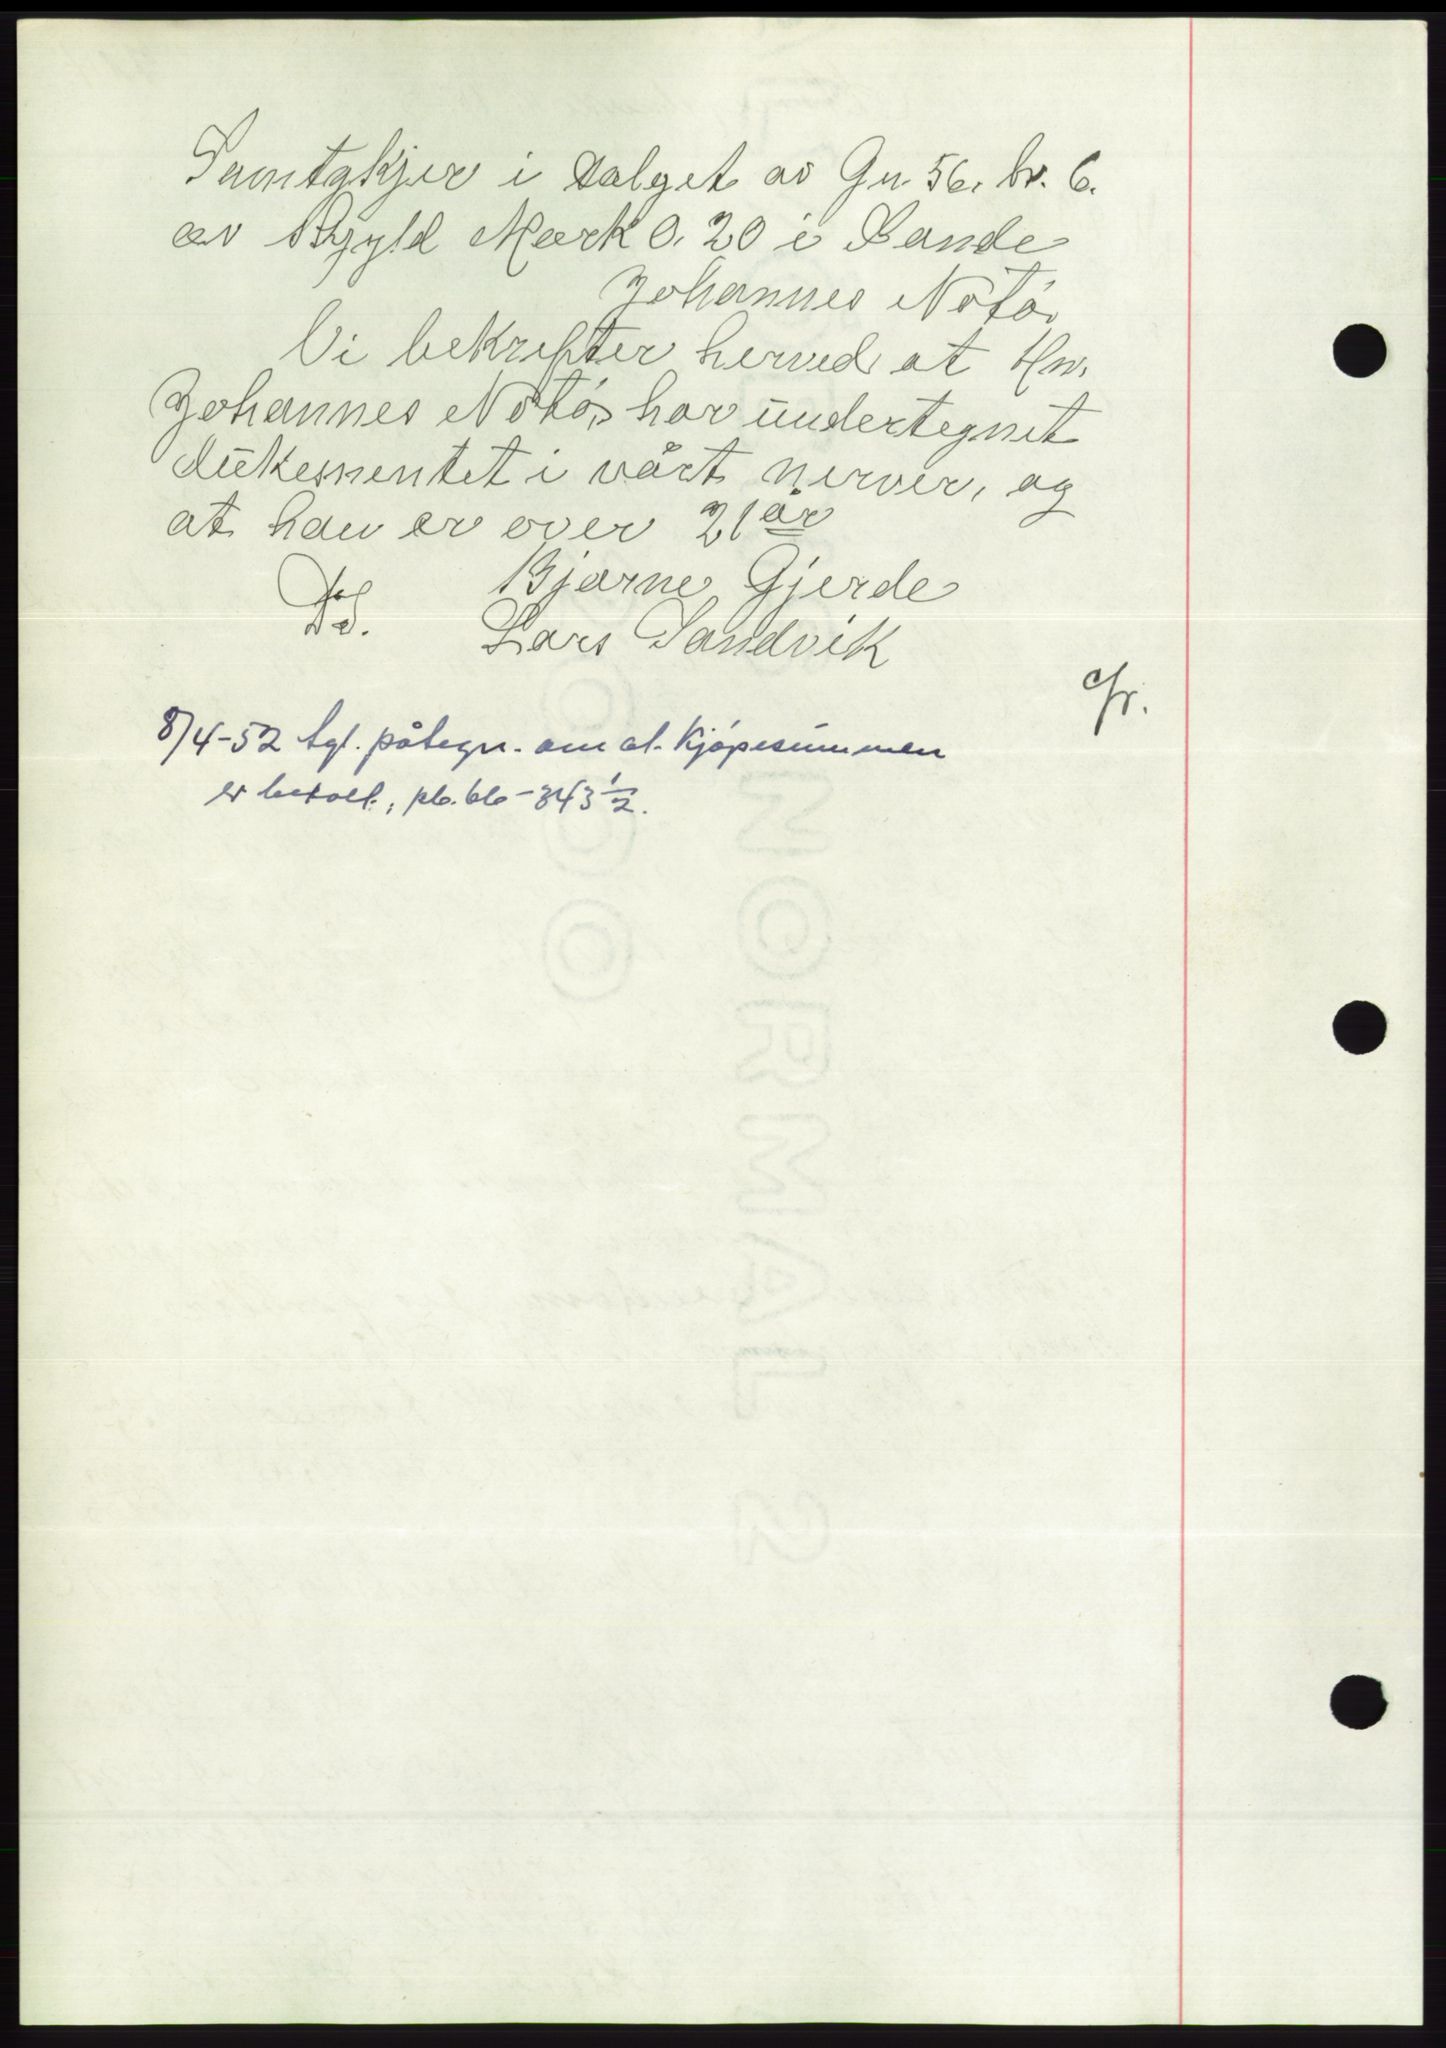 Samtykjer i Salget av Gn. 56. br. 6.
av Skyld Mark 0.20 i Sande
Johannes Nötö.
Vi bekrefter herved at Hr.
Johannes Nötö, har undertegnet
dukementet i vårt nerver, og
at han er over 21 år
Bjarne Gjerde
Lars Sandvik
8/4-52 tgl. påtegn. om at kjøpesummen
er betalt, pb. bb - 343 1/2.
NORMAL 2